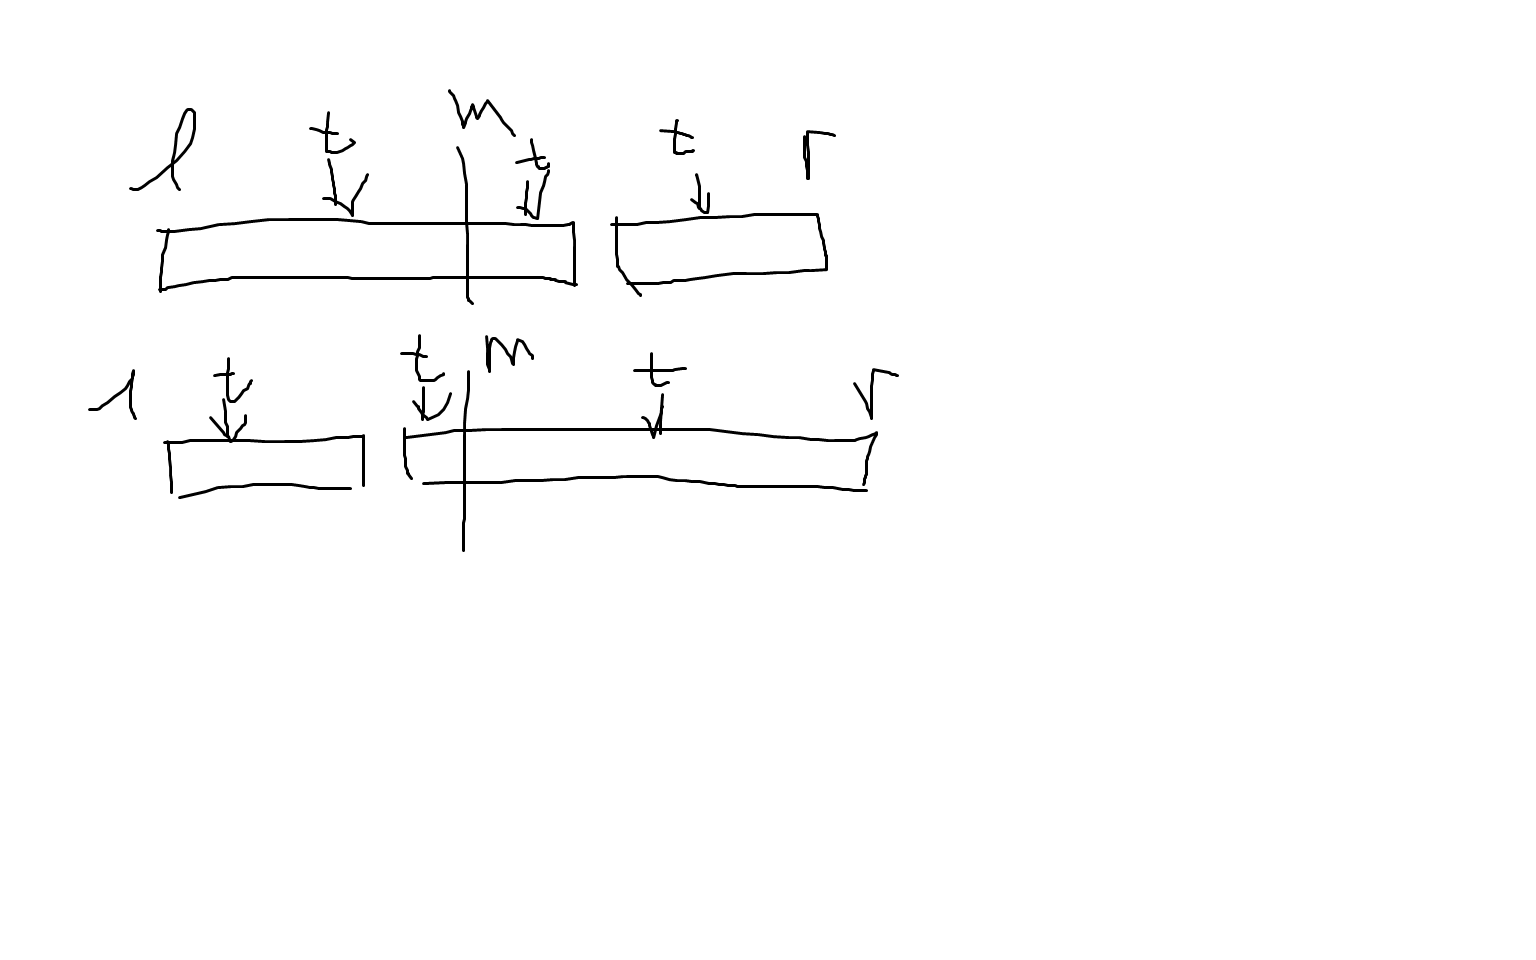 l t m t t r
l t t m t r